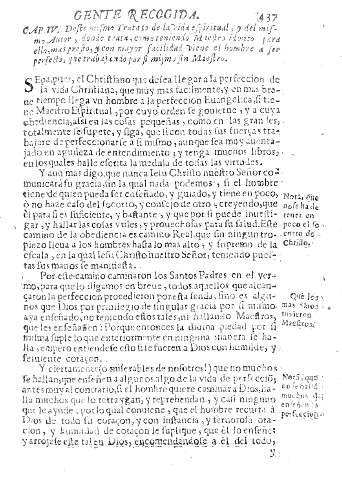 GENTE RECOGIDA. 437
CAP. IV. Deste mismo Tratado de la Vida espiritual, y del mis-
mo Autor, donde trata, como teniendo Maestro idoneo para
ello, mas presto, y con mayor facilidad viene el hombre a ser
perfecto, que trabajando por si mismo sin Maestro.
SEpa pues, el Christiano que desea llegar a la perfeccion de
la vida Christiana, que muy mas facilmente, y en mas bre-
ue tiempo llega vn hombre a la perfeccion Euangelica, si tie-
ne Maestro Espiritual, por cuyo orden se gouierne, y a cuya
obediencia, assi en las cosas pequeñas, como en las grandes,
totalmente se sujete, y siga, que si con todas sus fuerças tra-
bajare de perfeccionarse a si mismo, aunque sea muy auenta-
jado en agudeza de entendimiento, y tenga muchos libros,
en los quales halle escrita la medula de todas las virtudes.
Y aun mas digo, que nunca Iesu Christo nuestro Señor co-
municará su gracia, sin la qual nada podemos, si el hombre
tiene de quien pueda ser enseñado, y guiado, y tiene en poco,
ò no haze caso del socorro, y consejo de otro, creyendo, que
él para si es suficiente, y bastante, y que por si puede inuesti-
gar, y hallar las cosas vtiles, y prouechosas para su salud. Este
camino de la obediencia es camino Real, que sin ningun tro-
piezo lleua a los hombres hasta lo mas alto, y supremo de la
escala, en la qual Iesu Christo nuestro Señor, teniendo pues-
tas sus manos se manifiesta.
Nota, que
no se ha de
tener en
poco el so-
corro de
Christo.
Por este camino caminaron los Santos Padres en el yer-
mo, para que lo digamos en breue, todos aquellos que alcan-
çaron la perfeccion procedieron por esta senda, sino es algu-
nos que Dios por priuilegio de singular gracia por si mismo
aya enseñado, no teniendo estos tales, ni hallando Maestros,
que les enseñassen: Porque entonces la diuina piedad por si
misma suple lo que exteriormente en ninguna manera se ha-
lla, empero entiendese esto si se fueren a Dios con humilde, y
feruiente coraçon.
Maestros.
Y ciertamente (ò miserables de nosotros!) que no muchos
se hallan, que enseñen a algunos algo de la vida de perfecciō,
antes muy al contrario, si el hombre quiere caminar a Dios, ha-
lla muchos que lo retraygan, y reprehendan, y casi ninguno
que le ayude, por lo qual conuiene, que el hombre recurra á
Dios de todo su coraçon, y con instancia, y feruorosa ora-
cion, y humildad de coraçon le suplique, que él lo enseñe:
y arrojese este tal en Dios, encomendandose a él del todo,
Nota, que
muchos
perfeccion
y